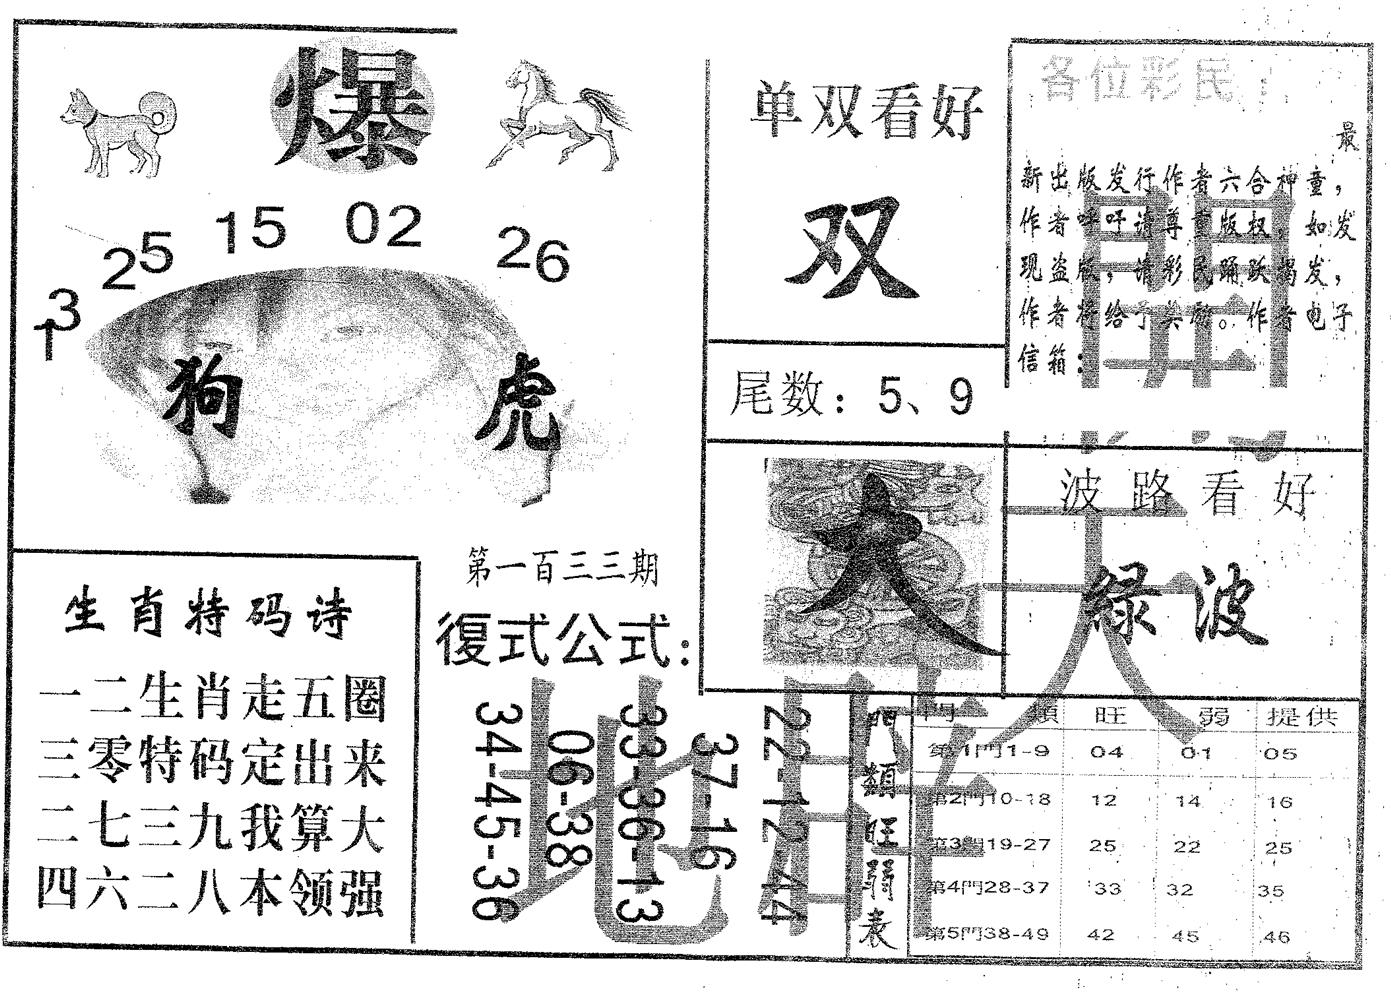 爆
13
25
15
02
26
狗
虎
单双看好
双
尾数：5、9
各位彩民：
最
新出版发行作者六合神童，
作者呼吁请尊重版权，如发
现盗版，请彩民踊跃揭发，
作者将给予奖励。作者电子
信箱：
大
波路看好
绿波
生肖特码诗
一二生肖走五圈
三零特码定出来
二七三九我算大
四六二八本领强
第一百三三期
復式公式：
34-45-36
06-38
33-36-13
37-16
22-12-44
門類旺弱表
門 類 旺 弱 提供
第1門1-9 04 01 05
第2門10-18 12 14 16
第3門19-27 25 22 25
第4門28-37 33 32 35
第5門38-49 42 45 46